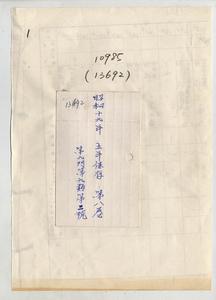 1
10985
(13692)
13692
昭和十九年 五年保存 第八卷
第九門第九類第二號